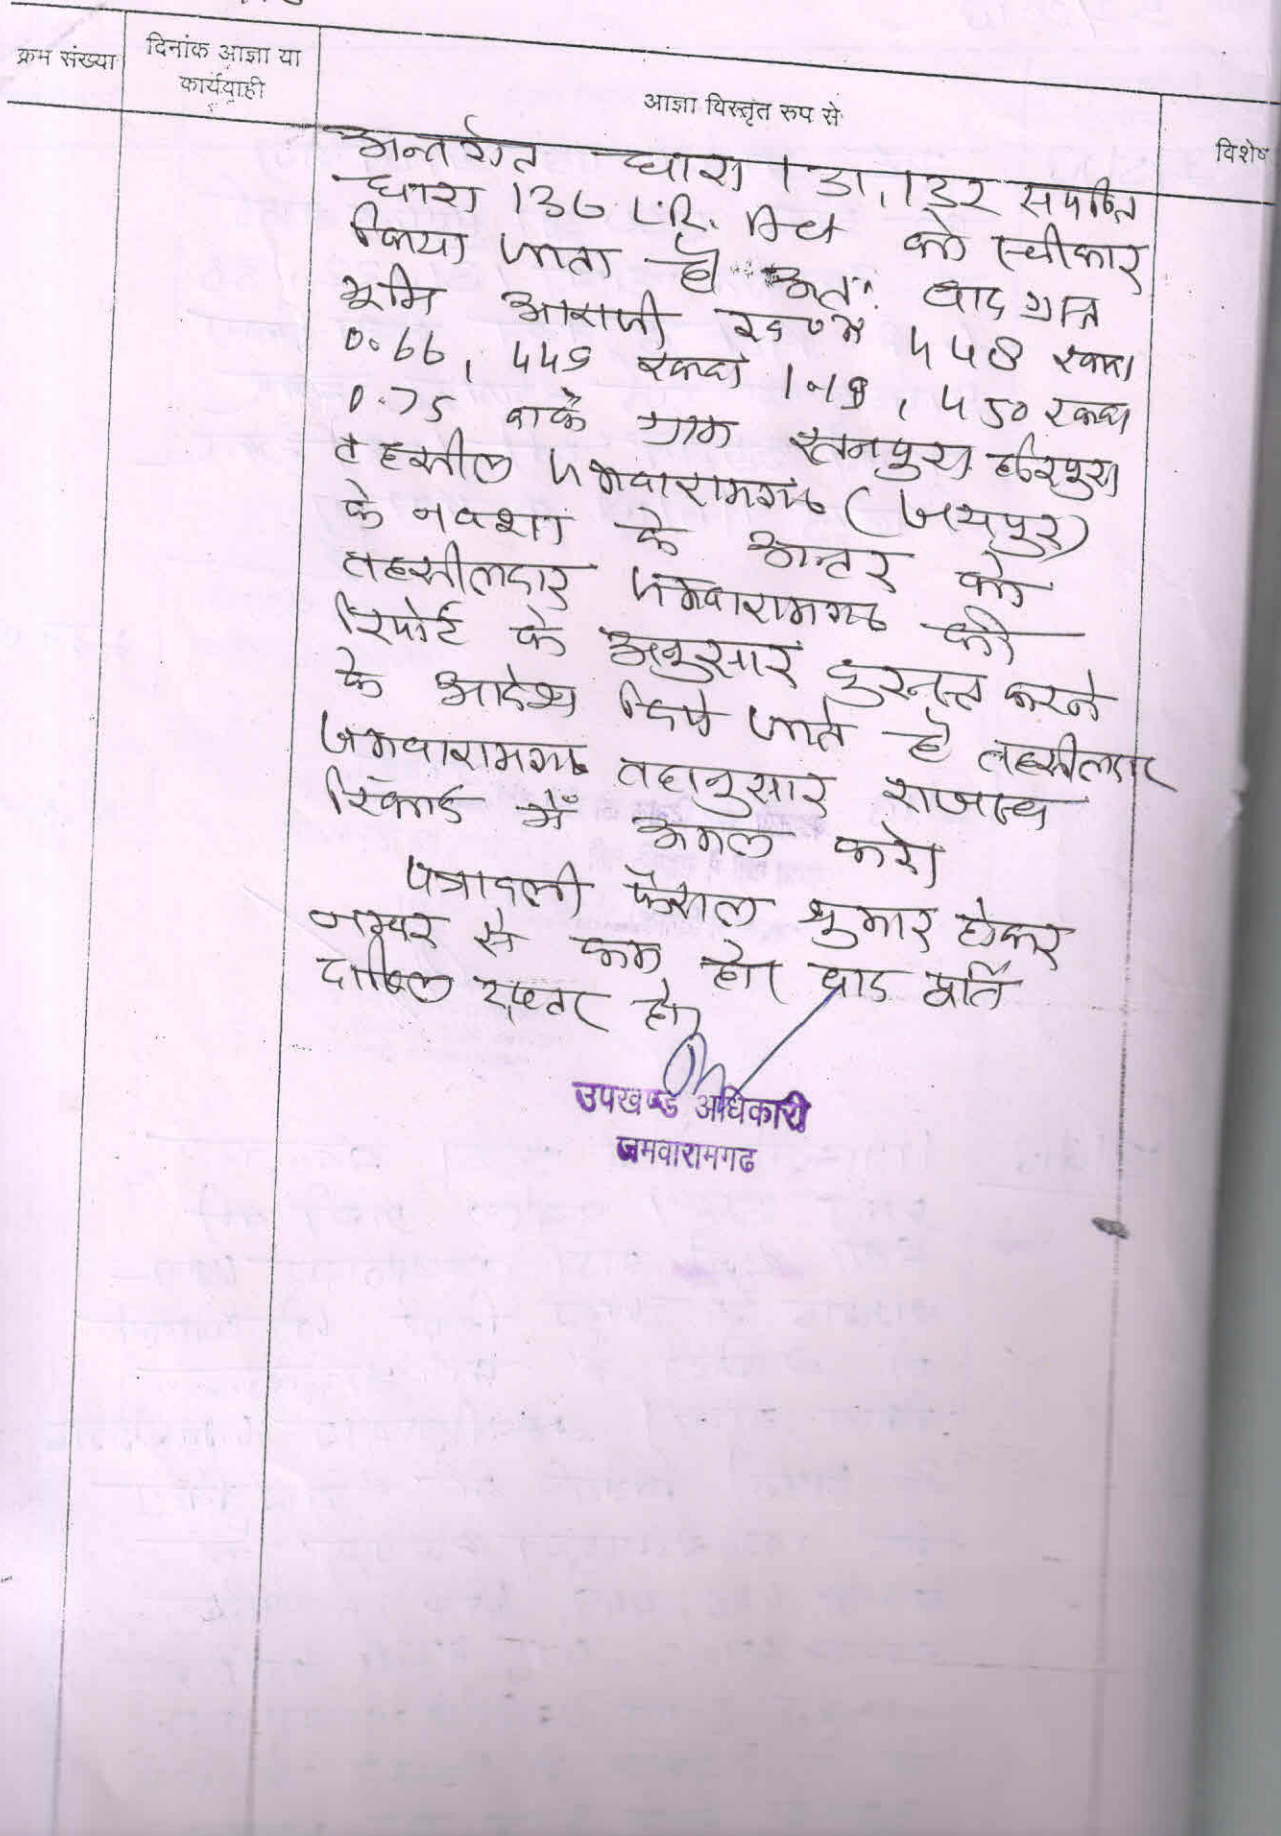 क्रम संख्या
दिनांक आज्ञा या
कार्यवाही
आज्ञा विस्तृत रूप से
विशेष
अन्तर्गत धारा 131, 132 सपठित
धारा 136 L.R. Act को स्वीकार
किया जाता है अतः वाद ग्रस्त
भूमि आराजी ख०नं० 448 रकबा
0.66, 449 रकबा 1.19, 450 रकबा
0.75 वाके ग्राम रतनपुरा हरिपुरा
तहसील जमवारामगढ (जयपुर)
के नक्शा के अन्तर को
तहसीलदार जमवारामगढ की
रिपोर्ट के अनुसार दुरुस्त करने
के आदेश दिये जाते है तहसीलदार
जमवारामगढ तदानुसार राजस्व
रिकार्ड में अमल करे।
पत्रावली फैसल शुमार होकर
नम्बर से कम हो। बाद पूर्ति
दाखिल दफ्तर हो।
उपखण्ड अधिकारी
जमवारामगढ